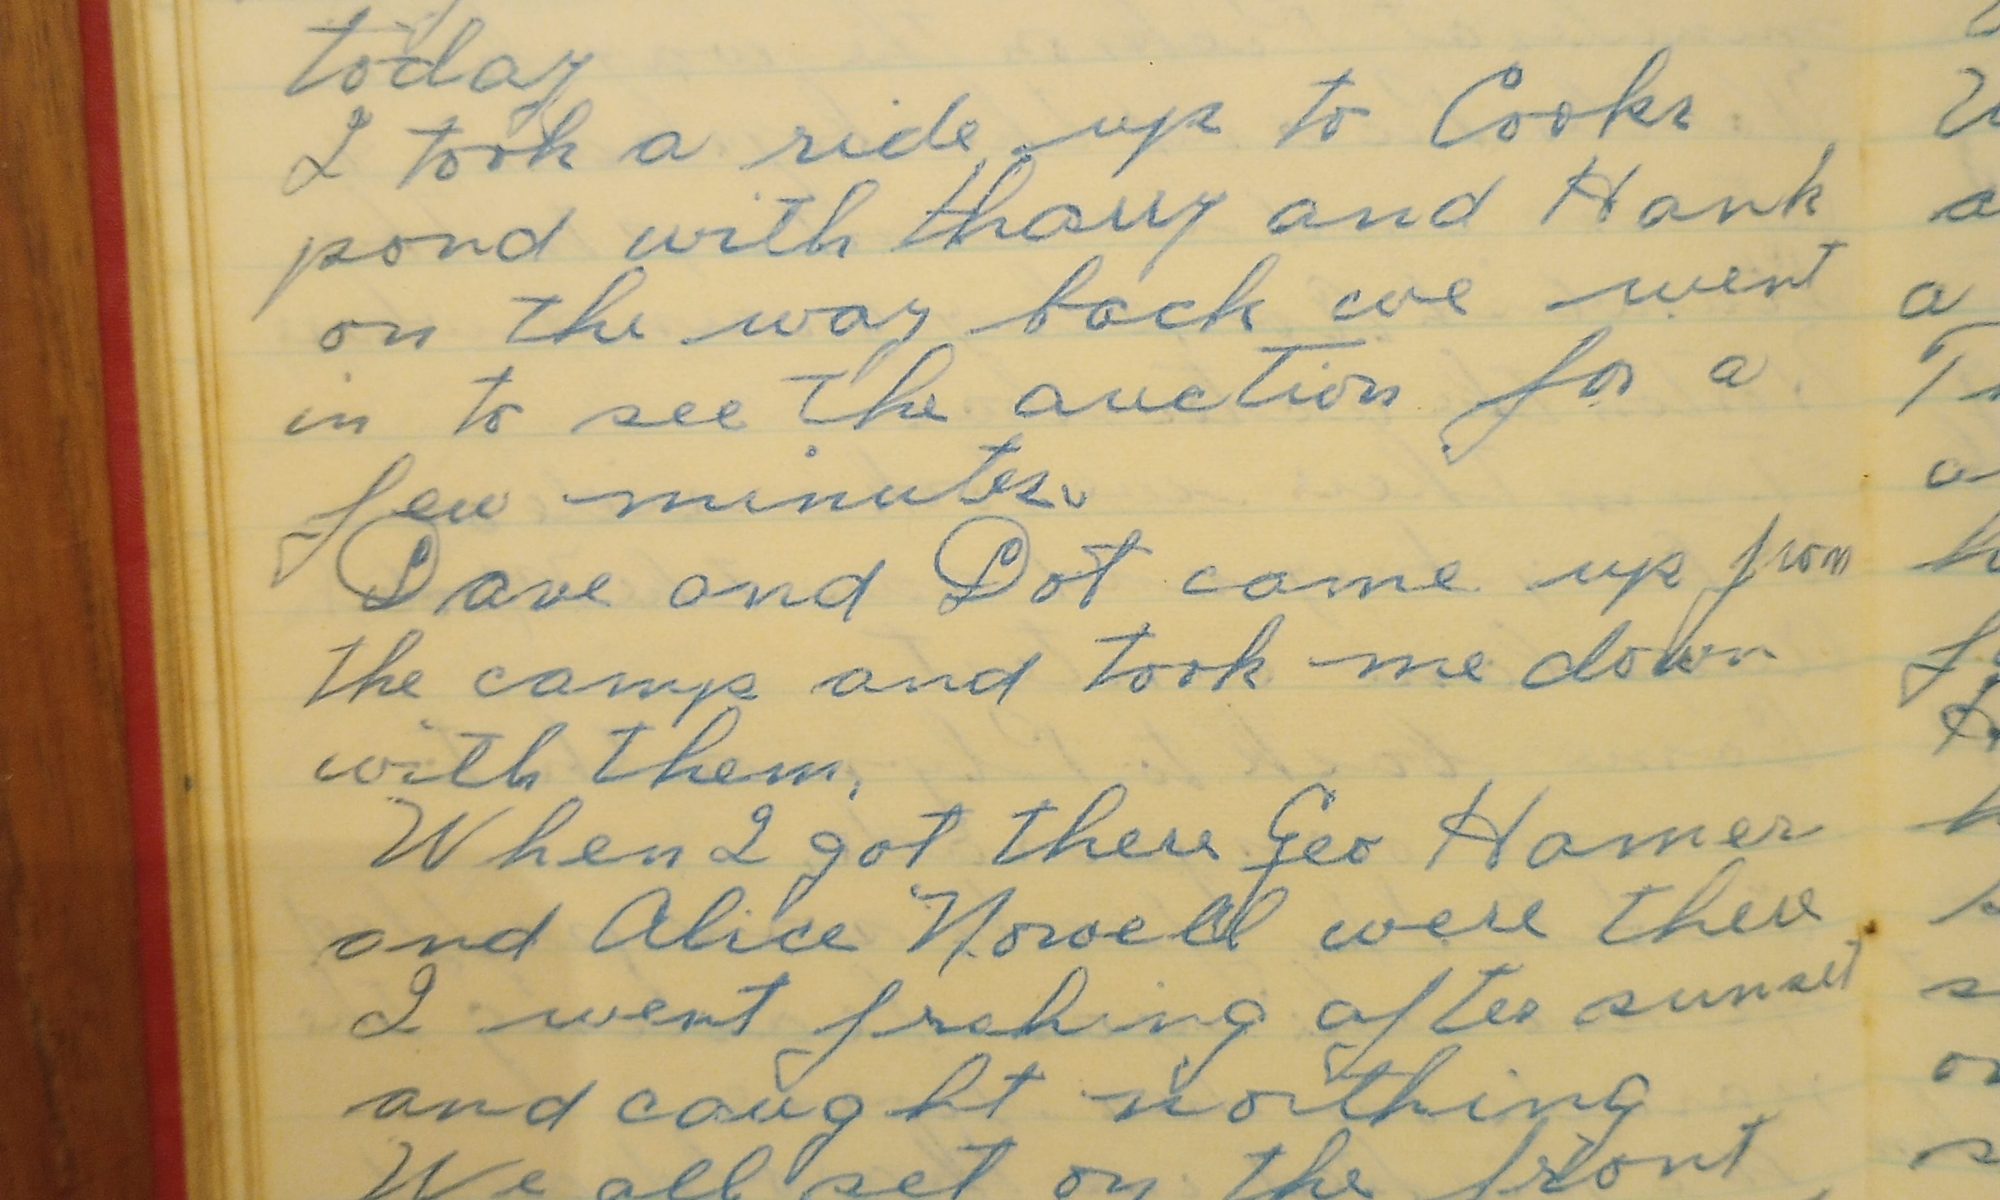 today
I took a ride up to Cooks
pond with and Hank
on the way back we went
in to see the auction for a
few minutes.
Dave and Dot came up from
the camp and took me down
with them.
When I got there Geo Hamer
and Alice Nowell were there
I went fishing after sunset
and caught nothing
We all set on the front